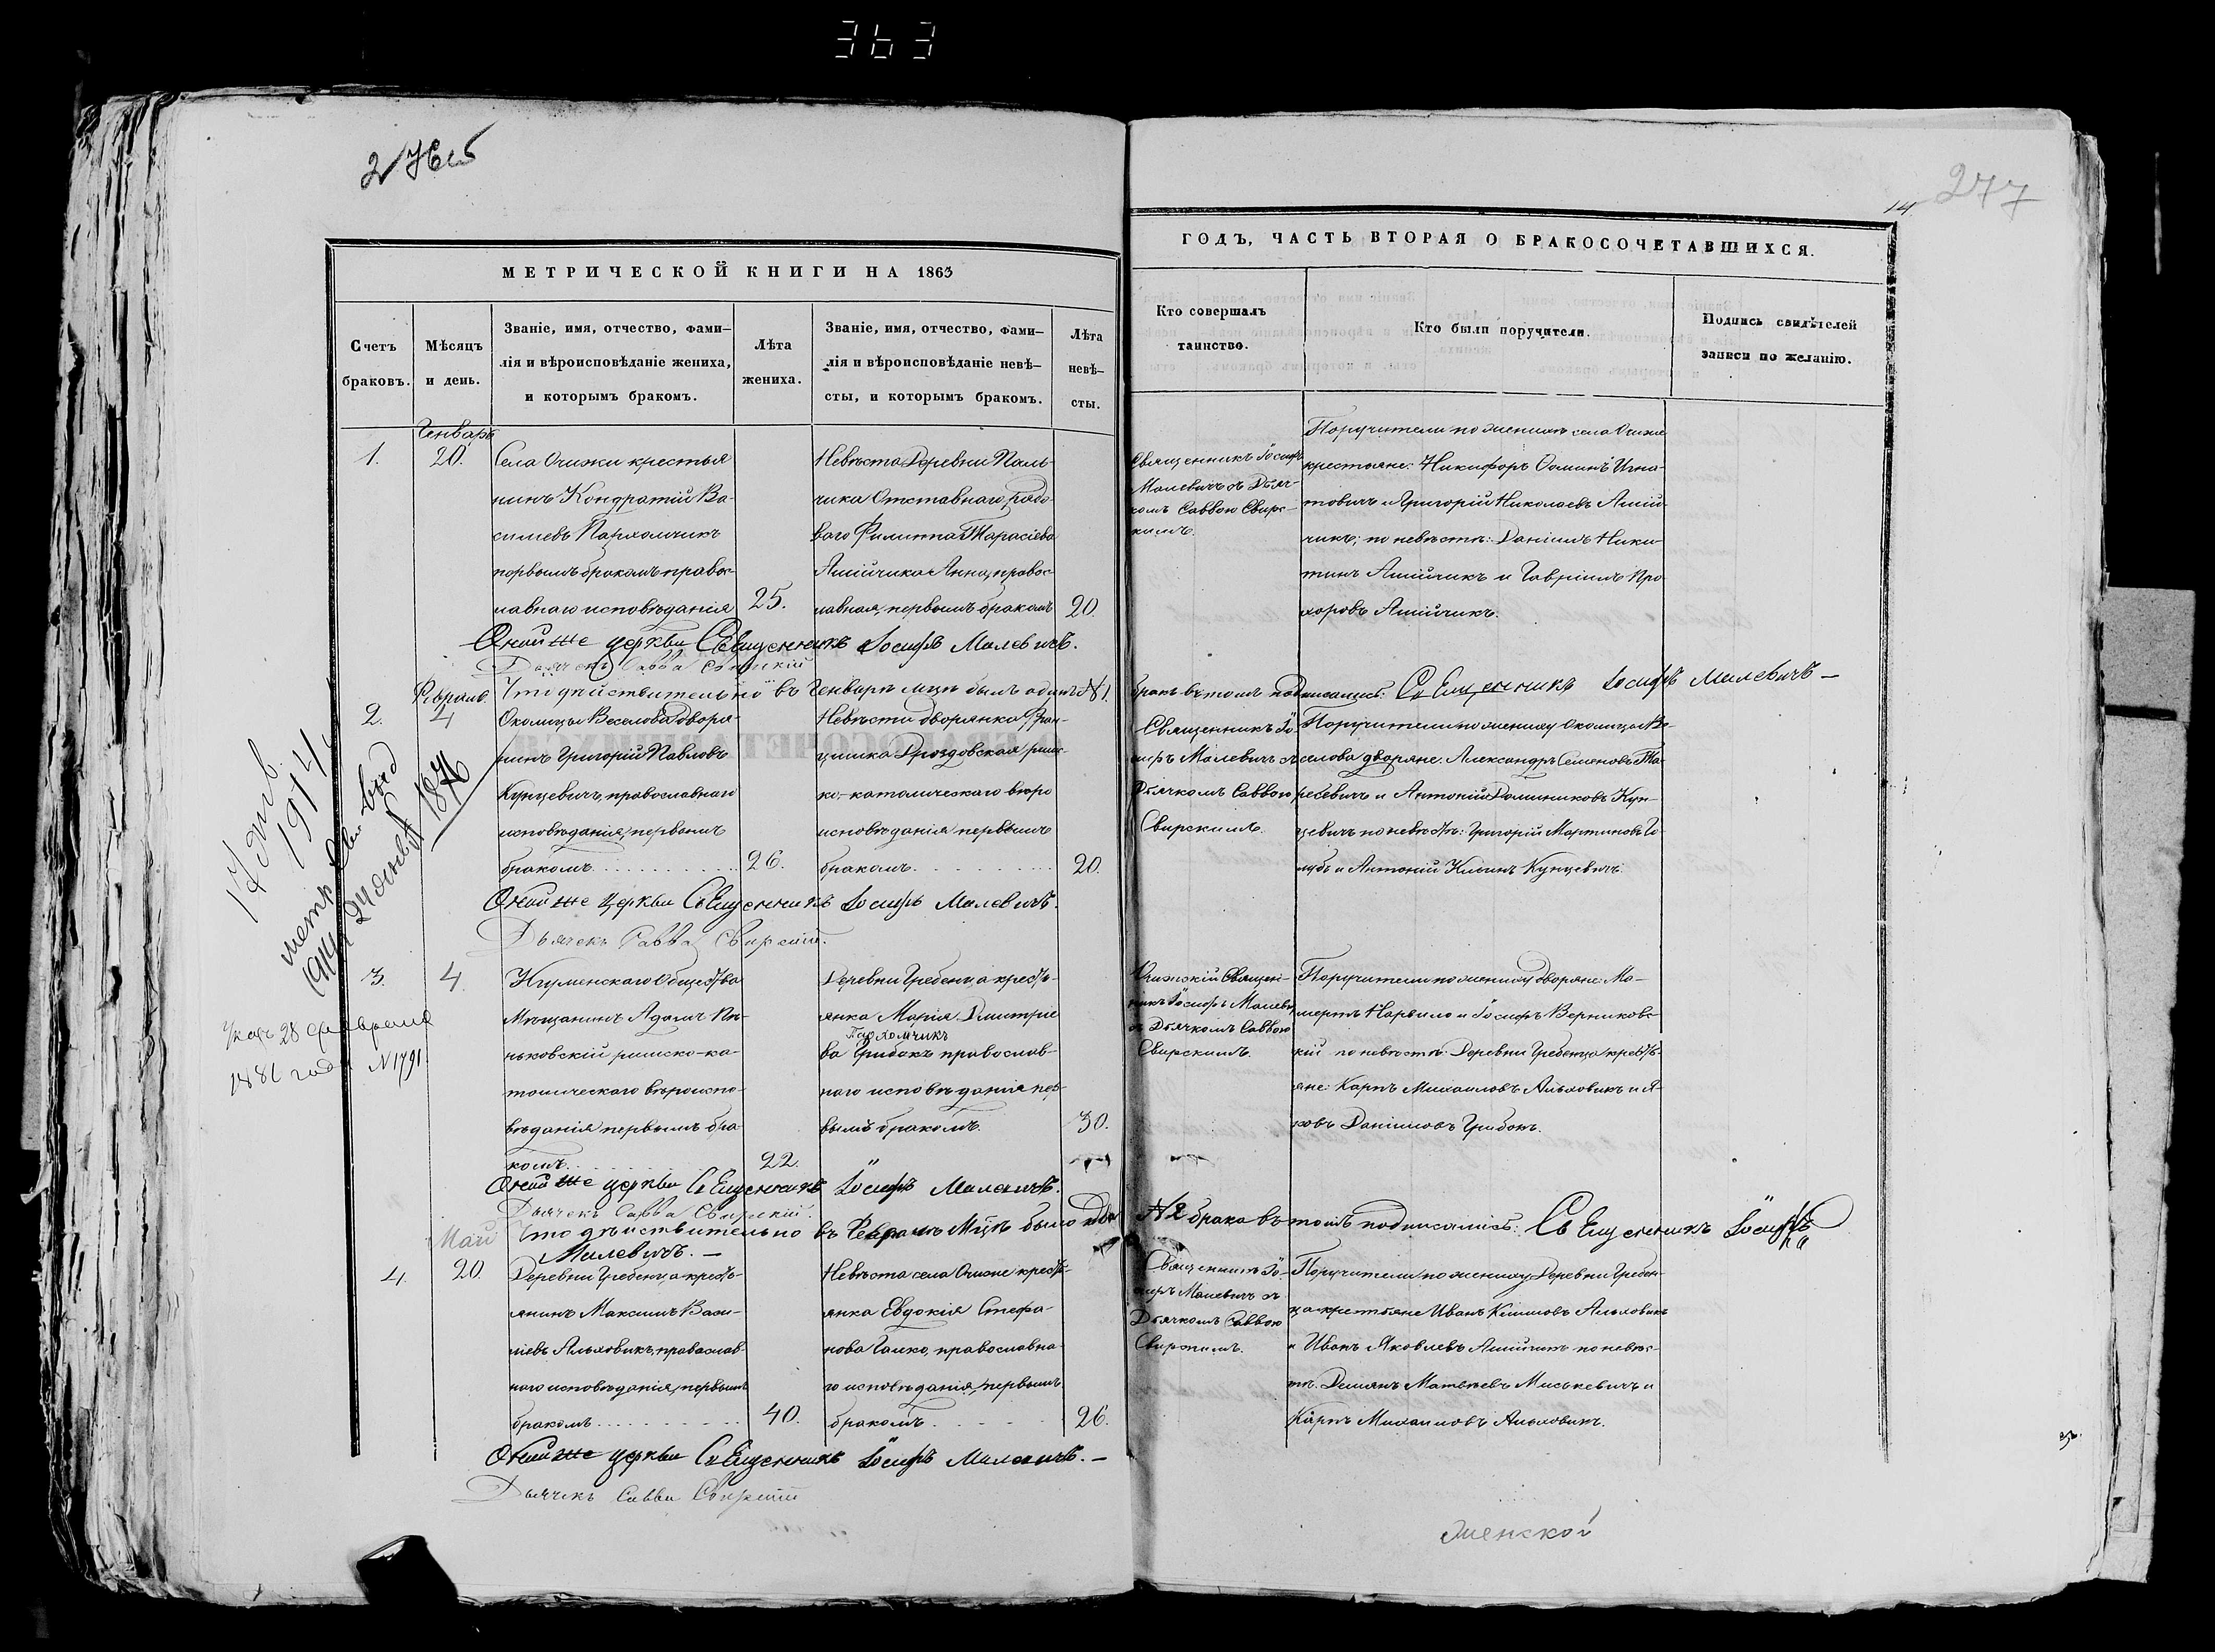 363
276 об
277
14
МЕТРИЧЕСКОЙ КНИГИ НА 1863
ГОДЪ, ЧАСТЬ ВТОРАЯ О БРАКОСОЧЕТАВШИХСЯ.
Счетъ
браковъ.
Мѣсяцъ
и день.
Званіе, имя, отчество, фами–
лія и вѣроисповѣданіе жениха,
и которымъ бракомъ.
Лѣта
жениха.
Званіе, имя, отчество, фами–
лія и вѣроисповѣданіе невѣ–
сты, и которымъ бракомъ.
Лѣта
невѣ–
сты.
Кто совершалъ
таинство.
Кто были поручители.
Подпись свидѣтелей
записи по желанію.
1.
Генварь
20.
Села Очижи крестья
нинъ Кондратій Ва-
сильевъ Пархомчикъ
первымъ бракомъ правос-
лавнаго исповѣданія
25.
Невѣста Деревни Паль-
чика Отставнаго рядо-
ваго Филиппа Тарасіева
Алійчика Анна, правос-
лавная, первымъ бракомъ
20.
Священникъ Іосифъ
Малевичъ съ Дьяч-
комъ Саввою Свирс-
кимъ.
Поручители по женихѣ села Очижи
крестьяне: Никифоръ Ѳоминъ Игна-
товичъ и Григорій Николаевъ Алій-
чикъ; по невѣстѣ: Даніилъ Ники-
тинъ Алійчикъ и Гавріилъ Про-
хоровъ Алійчикъ.
Оной же церкви Священникъ Іосифъ Малевичъ.
Дьячекъ Савва Свирскій
Что дѣйствительно въ Генварѣ мцѣ былъ одинъ №1.
бракъ въ томъ подписались: Священникъ Іосифъ Малевичъ —
2.
Февраль
4
Околицы Веселова дворя-
нинъ Григорій Павловъ
Кунцевичъ, православнаго
исповѣданія, первымъ
бракомъ
26.
Невѣста дворянка Фран-
цишка Дроздовская римс-
ко-католическаго вѣро
исповѣданія первымъ
бракомъ
20.
Священникъ Іо-
сифъ Малевичъ съ
Дьячкомъ Саввою
Свирскимъ.
Поручители по жениху Околицы Ве-
селова дворяне: Александръ Семеновъ Та-
расевичъ и Антоній Доминиковъ Кун-
цевичъ по невѣстѣ: Григорій Мартиновъ Го-
лубъ и Антоній Ильинъ Кунцевичъ.
Оной же церкви Священникъ Іосифъ Малевичъ.
Дьячекъ Савва Свирскій.
17 янв.
1914
метр. св. выд
24 1876
3.
4.
Игуменскаго Общества
Мѣщанинъ Адамъ Пѣ-
ньковскій римско-ка-
толическаго вѣроиспо-
вѣданія первымъ бра-
комъ
22.
Деревни Гребенца кресть-
янка Марія Дмитріе
Пархомчикъ
ва Грибокъ православ-
наго исповѣданія пер-
вымъ бракомъ.
30.
Очижскій Священ-
никъ Іосифъ Малевичъ
съ Дьячкомъ Саввою
Свирскимъ.
Поручители по жениху дворяне:
и Іосифъ Верниковс-
кій по невѣстѣ: Деревни Гребенца кресть-
яне: Карпъ Михаиловъ Альховикъ и Я-
ковъ Даніиловъ Грибокъ.
Указъ 28 февраля
1886 года №1791
Оной же церкви Священникъ Іосифъ Малевичъ.
Дьячекъ Савва Свирскій.
Что дѣйствительно въ Февралѣ Мцѣ было два
№2 брака въ томъ подписались: Священникъ Іосифъ
Малевичъ. —
4.
Май
20.
Деревни Гребенца кресть-
янинъ Максимъ Васи-
ліевъ Альховикъ, православ-
наго исповѣданія, первымъ
бракомъ
40.
Невѣста села Очижи кресть-
янка Евдокія Стефа-
нова Галко, православна-
го исповѣданія, первымъ
бракомъ
26.
Священникъ Іо-
сифъ Малевичъ съ
Дьячкомъ Саввою
Свирскимъ.
Поручители по жениху Деревни Гребен-
ца крестьяне Иванъ Климовъ Альховикъ
и Иванъ Яковлевъ Алійчикъ по невѣс-
тѣ: Демянъ Матвѣевъ Миськевичъ и
Карпъ Михаиловъ Альховикъ.
Оной же церкви Священникъ Іосифъ Малевичъ. —
Дьячекъ Савва Свирскій